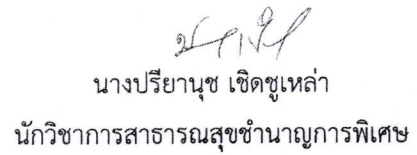 นางปรียานุช เชิดชูเหล่า
นักวิชาการสาธารณสุขชำนาญการพิเศษ